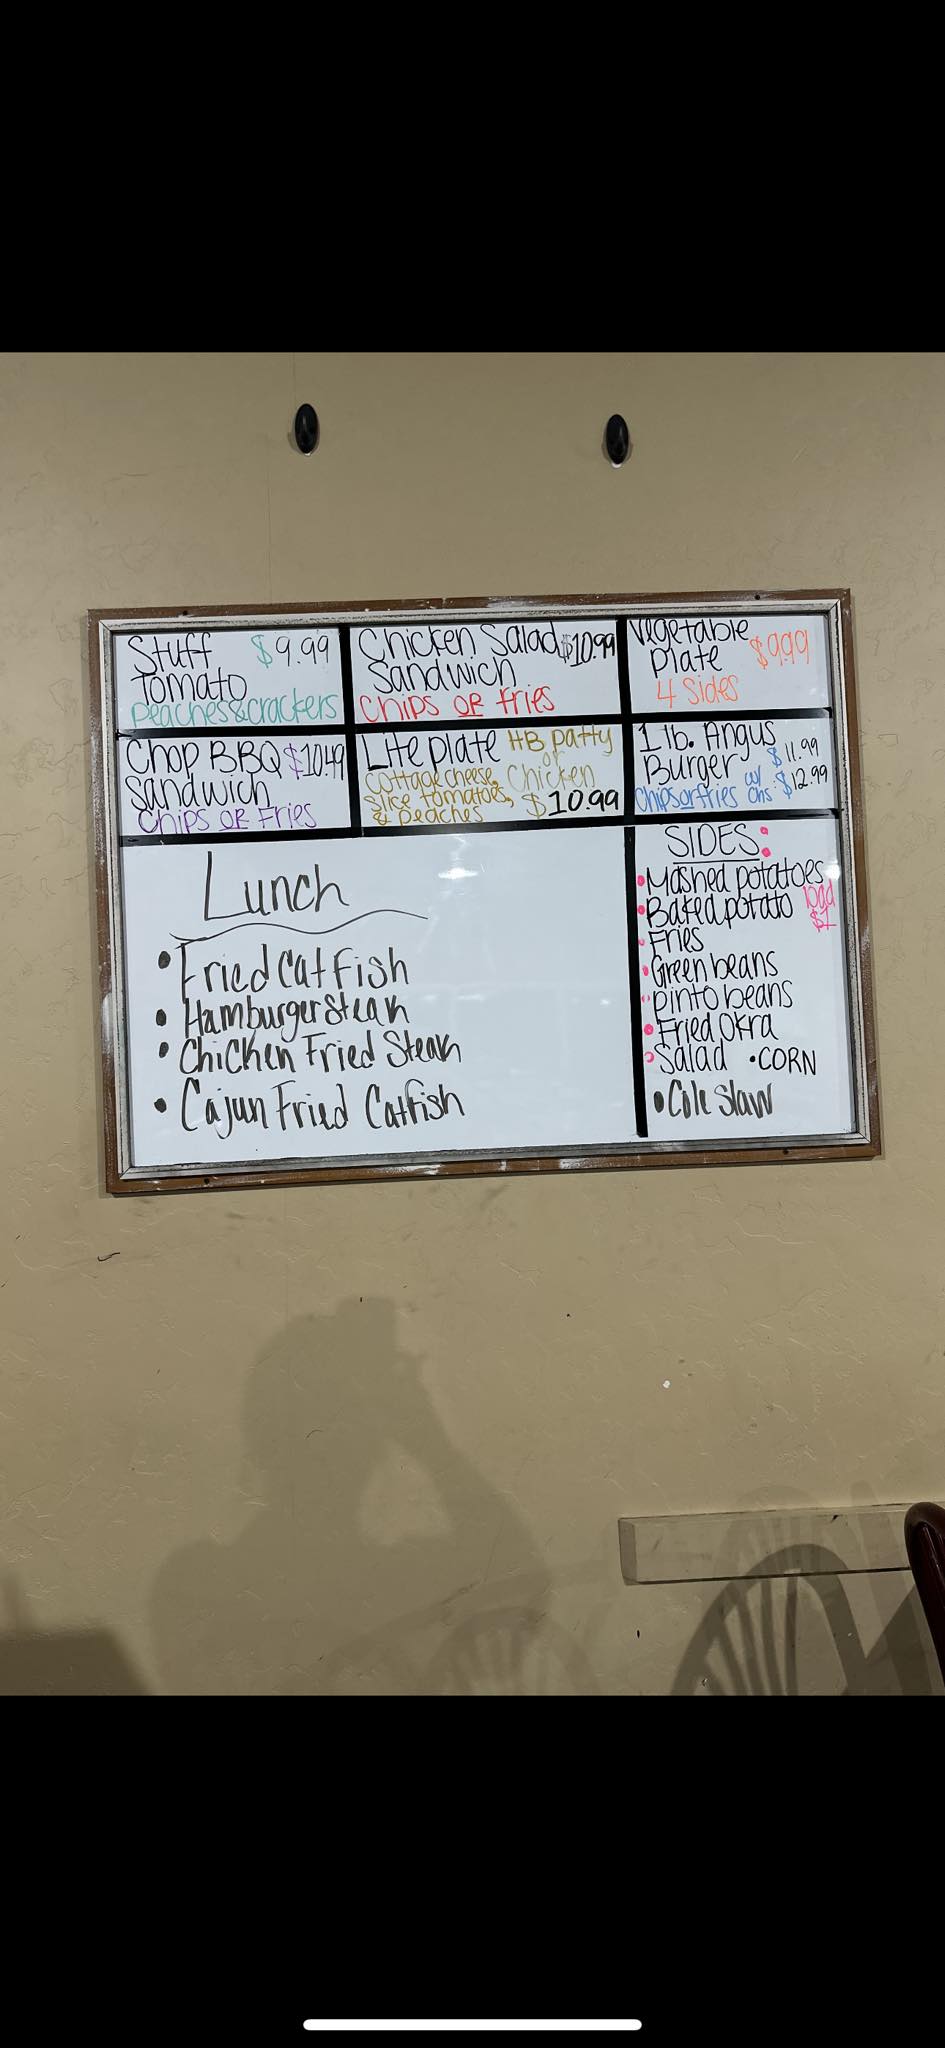 Stuff $9.99
Tomato
Peaches & crackers
Chicken Salad $10.99
Sandwich
Chips OR Fries
Vegetable
Plate $9.99
4 Sides
Chop BBQ $10.49
Sandwich
Chips OR Fries
Lite plate HB patty
or
Cottage cheese, Chicken
Slice tomatoes,
& Peaches $10.99
1 lb. Angus
Burger $11.99
Chips or fries w/ chs $12.99
Lunch
• Fried Catfish
• Hamburger Steak
• Chicken Fried Steak
• Cajun Fried Catfish
SIDES:
• Mashed potatoes
• Baked potato load $1
• Fries
• Green beans
• pinto beans
• Fried Okra
• Salad • CORN
• Cole Slaw